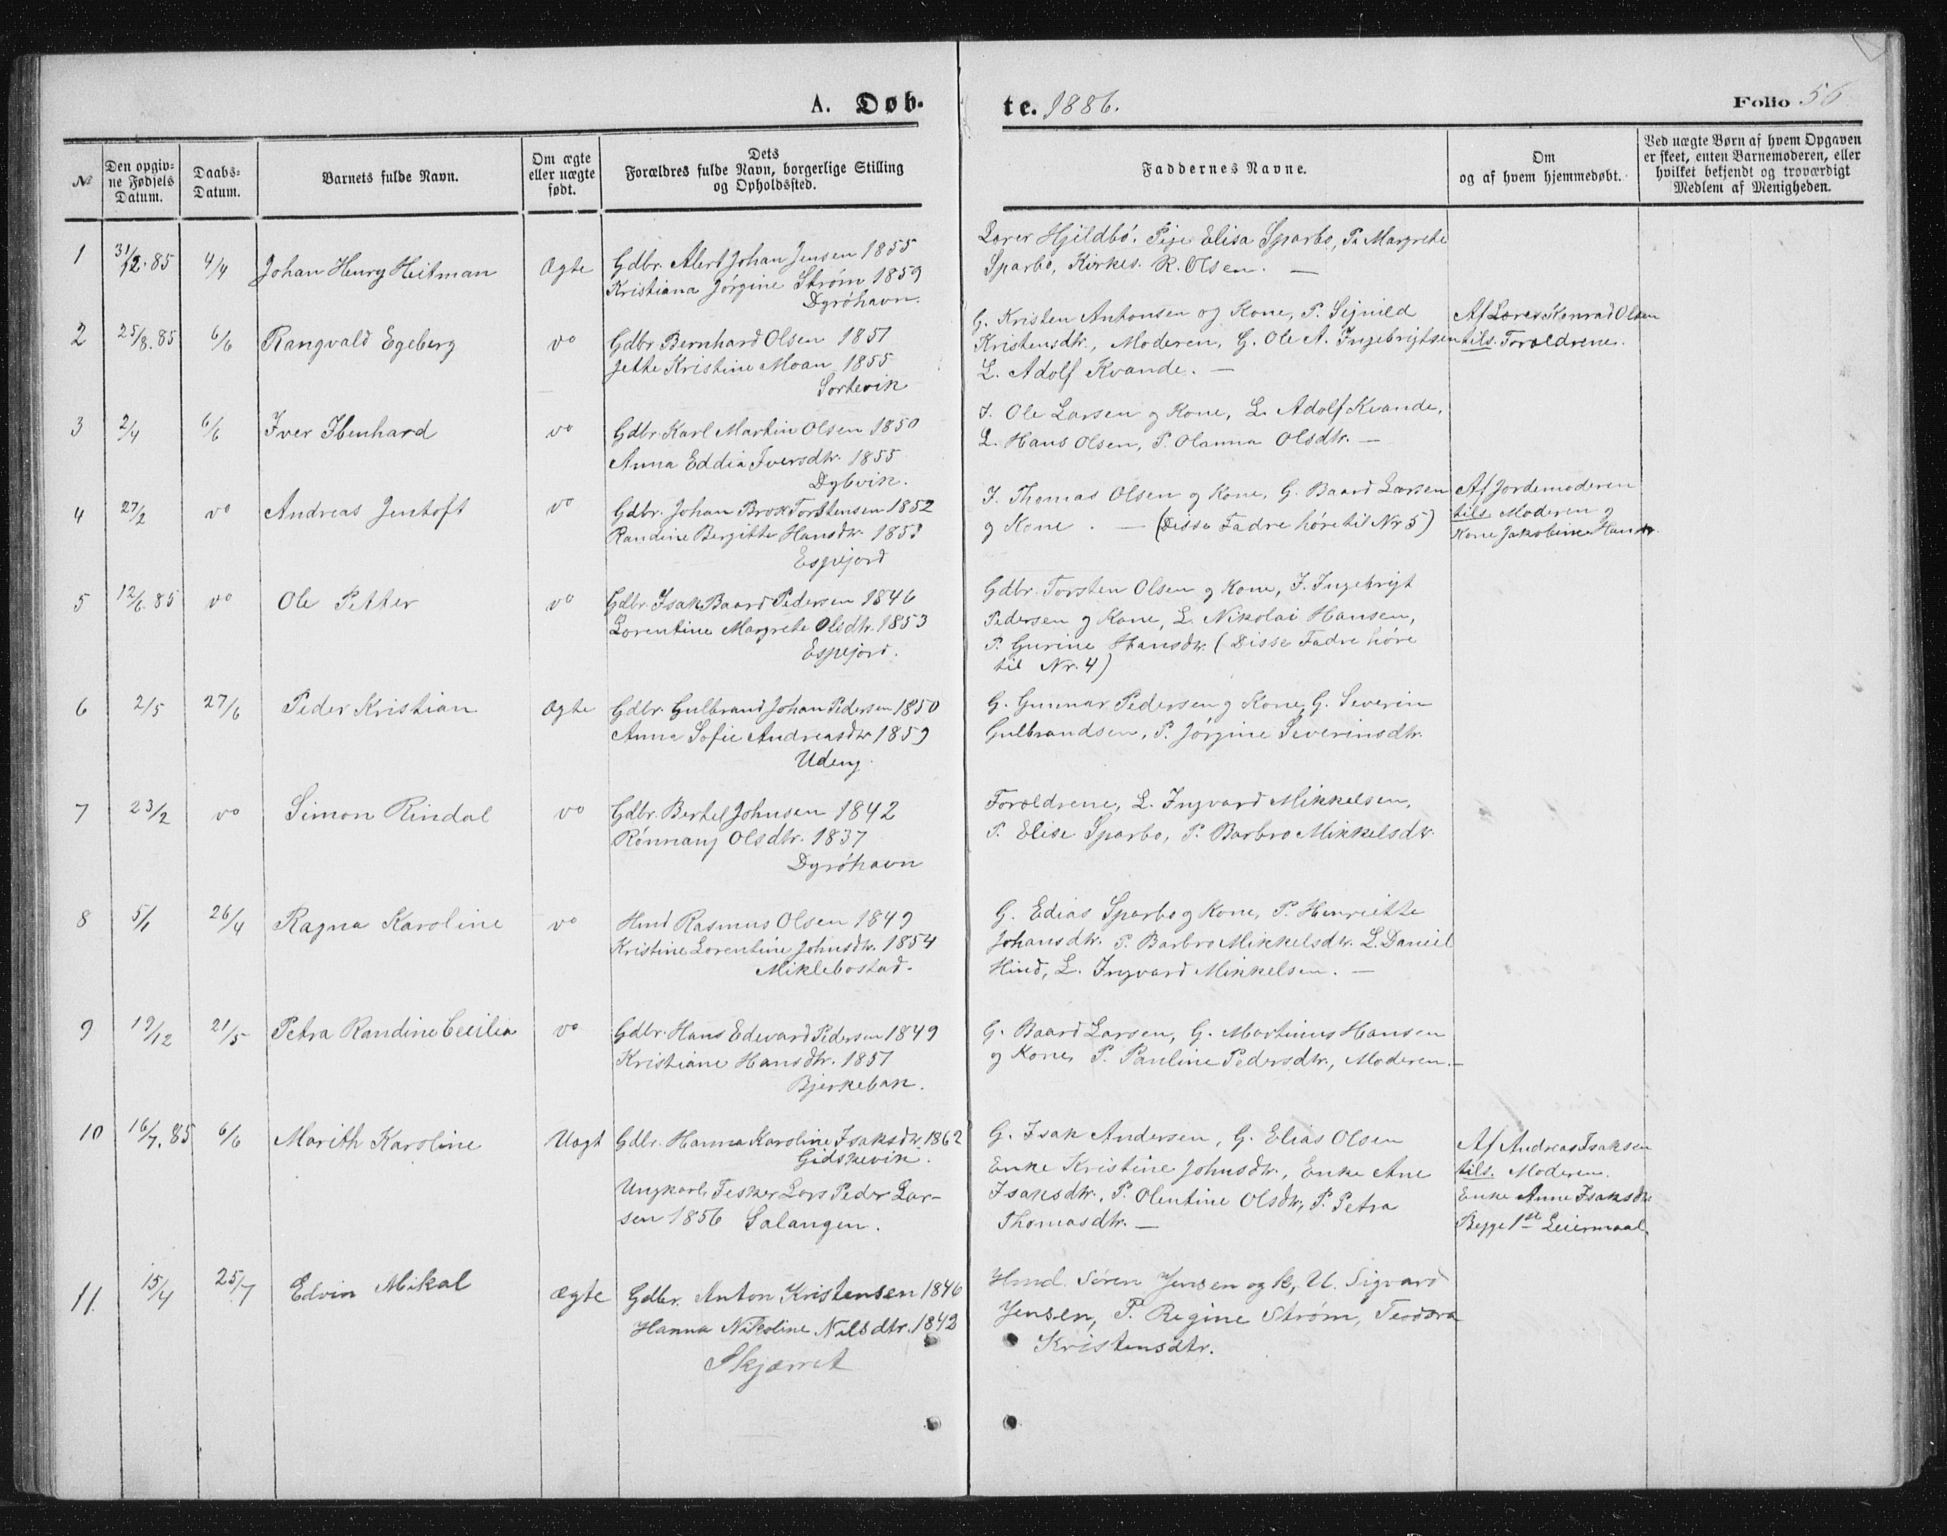 A. Døb-
te. 1886.
Folio 56
№
Den opgiv-
ne Fødsels
Datum.
Daabs-
Datum.
Barnets fulde Navn.
Om ægte
eller uægte
født.
Dets
Forældres fulde Navn, borgerlige Stilling
og Opholdssted.
Faddernes Navne.
Om
og af hvem hjemmedøbt.
Ved uægte Børn af hvem Opgaven
er skeet, enten Barnemoderen, eller
hvilket bekjendt og troværdigt
Medlem af Menigheden.
1 31/12.85 4/4 Johan Henry Heitman Ægte
Gdbr. Alert Johan Jensen 1855
Kristiana Jørgine Strøm 1859
Dyrøhavn.
Lærer Hjeldbø, Pige Elisa Sparbo, P. Margrete
Sparbo, Kirkes. R. Olsen. —
2 25/8.85 6/6 Rangvald Egeberg vo
Gdbr Bernhard Olsen 1851
Jette Kristine Moan 1855
Sortevik
G. Kristen Antonsen og Kone, P. Signild
Kristensdtr., Moderen, G. Ole A. Ingebrigtsen
L. Adolf Kvande. —
Af Lærer Konrad Olsen
tils. Forældrene.
3 2/4 6/6 Iver Ibenhard vo
Gdbr. Karl Martin Olsen 1850
Anna Eddia Iversdtr. 1855
Dybvik.
I. Ole Larsen og Kone, L. Adolf Kvande,
L. Hans Olsen, P. Olanna Olsdtr. —
4 27/2 vo Andreas Jentoft vo
Gdbr. Johan Brox Torstensen 1852
Randine Bergitte Hansdtr. 1853
Espejord
I. Thomas Olsen og Kone, G. Baard Larsen
og Kone. — (Disse Fadre høre til Nr 5)
Af Jordemoderen
tils. Moderen og
Kone Jakobine Hansdtr.
5 12/6.85 vo Ole Petter vo
Gdbr. Isak Baard Pedersen 1846
Lorentine Margrete Olsdtr. 1853
Espejord.
Gdbr. Torsten Olsen og Kone, I. Ingebrigt
Pedersen og Kone, L. Nikolai Hansen,
P. Gurine Hansdtr. (Disse Fadre høre
til Nr. 4)
6 2/5 27/6 Peder Kristian Ægte
Gdbr. Gulbrand Johan Pedersen 1850
Anna Sofie Andreasdtr 1859
Udeng.
G. Gunnar Pedersen og Kone, G. Severin
Gulbrandsen, P. Jørgine Severinsdtr.
7 23/2 vo Simon Rindal vo
Gdbr. Bertel Johnsen 1842
Rønnaug Olsdtr. 1837
Dyrøhavn
Forældrene, L. Ingvard Mikkelsen,
P. Elise Sparbo, P. Barbro Mikkelsdtr.
8 5/1 26/4 Ragna Karoline vo
Hmd Rasmus Olsen 1849
Kristine Lorentine Johnsdtr. 1854
Miklebostad.
G. Edias Sparbo og Kone, P. Henriette
Johansdtr. P. Barbro Mikkelsdtr. L. Daniel
Hind, L. Ingvard Mikkelsen. —
9 19/12 21/5 Petra Randine Cecilia vo
Gdbr. Hans Edevard Pedersen 1849
Kristiane Hansdtr. 1851
Bjerkebak.
G. Baard Larsen, G. Martinus Hansen
og Kone, P. Pauline Pedersdtr., Moderen. —
10 16/7.85 6/6 Marith Karoline Uægt
Gdbr. Hanna Karoline Isaksdtr 1862
Gidskevik.
Ungkarl, Fisker Lars Peder Lar-
sen 1856 Salangen.
G. Isak Andersen, G. Elias Olsen
Enke Kristine Johnsdtr., Enke Ane
Isaksdtr., P. Olentine Olsdtr, P. Petra
Thomasdtr. —
Af Andreas Isaksen
tils. Moderen.
Enke Anne Isaksdtr
Begge 1ste Leiermaal.
11. 15/4 25/7 Edvin Mikal Ægte
Gdbr. Anton Kristensen 1846
Hanna Nikoline Nilsdtr. 1842
Skjærret
Hmd. Søren Jensen og K, U. Sigvard
Jensen, P. Regine Strøm, Teodora
Kristensdtr.